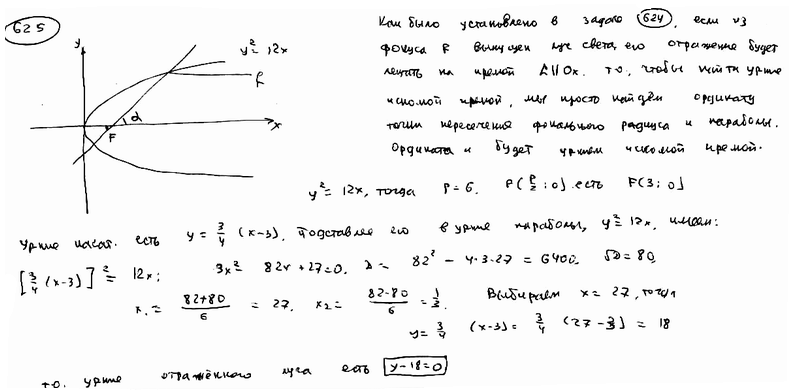 625
y
y² = 12x
α
F
x
Как было установлено в задаче 624, если из
фокуса F выпущен луч света, его отражение будет
лежать на прямой L || Ox. т.о., чтобы найти ур-ние
искомой прямой, мы просто найдём ординату
точки пересечения фокального радиуса и параболы.
Ордината и будет ур-нием искомой прямой.
y² = 12x, тогда P = 6. F(P/2; 0) есть F(3; 0)
Ур-ние касат. есть y = 3/4 (x-3). Подставляя его в ур-ние параболы, y² = 12x, имеем:
[3/4 (x-3)]² = 12x; 3x² - 82x + 27 = 0. D = 82² - 4·3·27 = 6400. √D = 80.
x₁ = (82+80)/6 = 27. x₂ = (82-80)/6 = 1/3. Выбираем x = 27, тогда
y = 3/4 (x-3) = 3/4 (27-3) = 18
т.о. ур-ние отражённого луча есть y-18=0